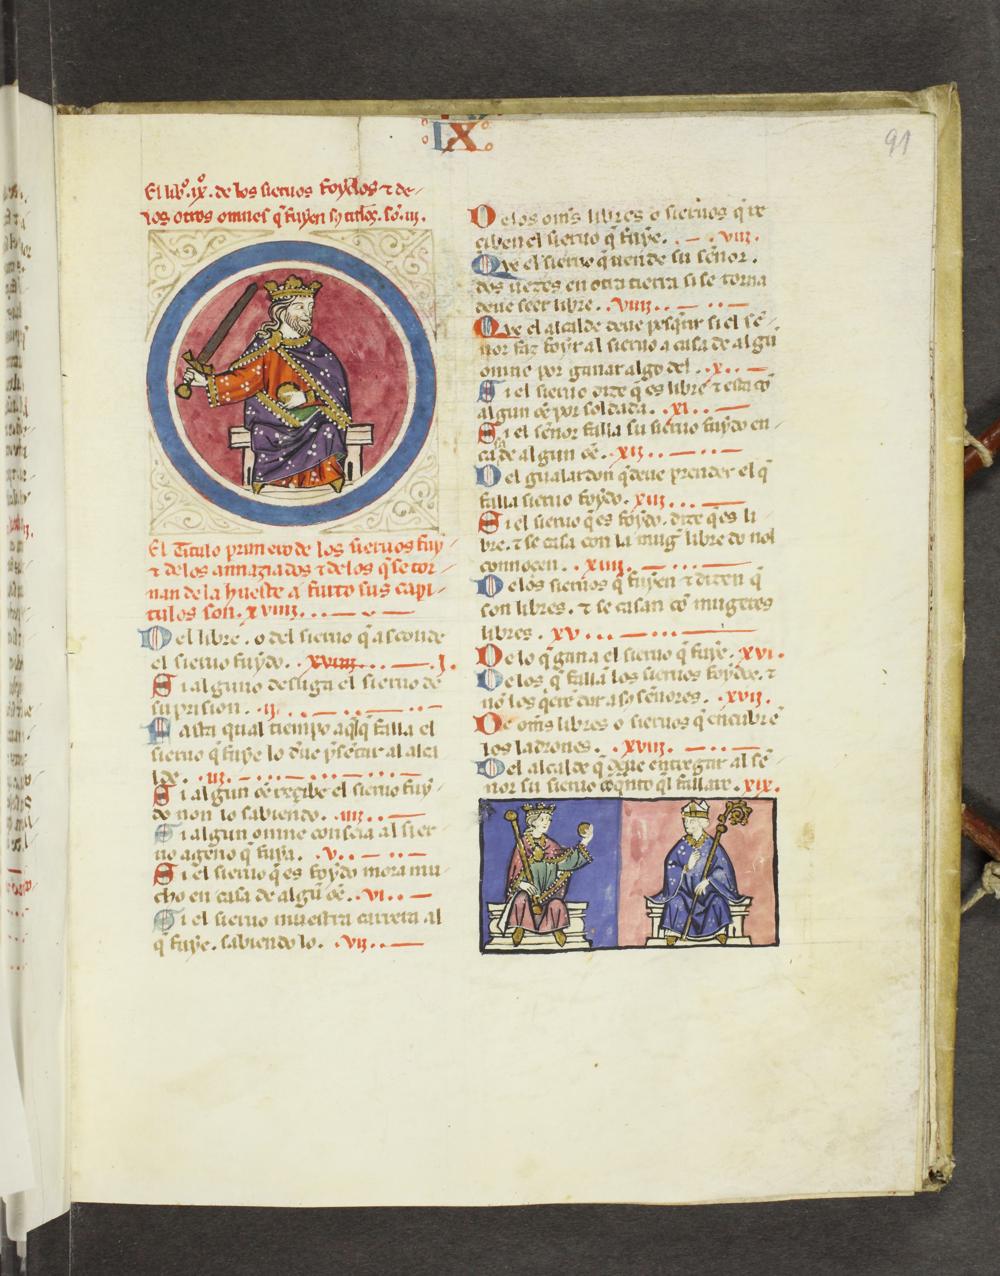 IX
91
El lib̃o .ix. de los sieruos foydos τ de
los otros omnes q̃ fuyen
El Titulo primero de los sieruos fuy
τ de los annaziados τ de los q̃ se tor
nan de la hueste a furto sus capi
tulos son. xviiii.
Del libre. o del sieruo q̃ asconde
el sieruo fuydo. .I.
Si alguno desliga el sieruo de
su prision. .ii.
Fasta qual tiempo aq̃l q̃ falla el
sieruo q̃ fuye lo deue p̃sentar al alcal
lde. .iii.
Si algun õe reçibe el sieruo fuy
do non lo sabiendo. .iiii.
Si algun omne conseia al sier
uo ageno q̃ fuya. .v.
Si el sieruo q̃ es foydo mora mu
cho en casa de algũ õe. .vi.
Si el sieruo muestra carrera al
q̃ fuye. sabiendo lo. .vii.
De los om̃s libres o sieruos q̃ re
ciben el sieruo q̃ fuye. .viii.
Que el sieruo q̃ uende su señor.
dos uezes en otra tierra si se torna
deue seer libre. .viiii.
Que el alcalde deue pesq̃rir si el se
nor faz foyr al sieruo a casa de algũ
omne por ganar algo del .x.
Si el sieruo dize q̃ es libre τ esta cõ
algun õe por soldada. .xi.
Si el señor falla su sieruo fuydo en
casa de algun õe. .xii.
Del gualardon q̃ deue prender el q̃
falla sieruo foydo. xiii.
Si el sieruo q̃ es foydo. dize q̃ es li
bre. τ se casa con la mug̃ libre do nol
connoçen. .xiiii.
De los sieruos q̃ fuyen τ dizen q̃
son libres. τ se casan cõ mugeres
libres. .xv.
De lo q̃ gana el sieruo q̃ fuye. xvi.
De los q̃ fallã los sieruos foydos. τ
nõ los q̃erẽ dar a so señores. .xvii.
De om̃s libres o sieruos q̃ encubrẽ
los ladrones. .xviii.
Del alcalde q̃ deue entregar al se
nor su sieruo q̃l fallare. xix.